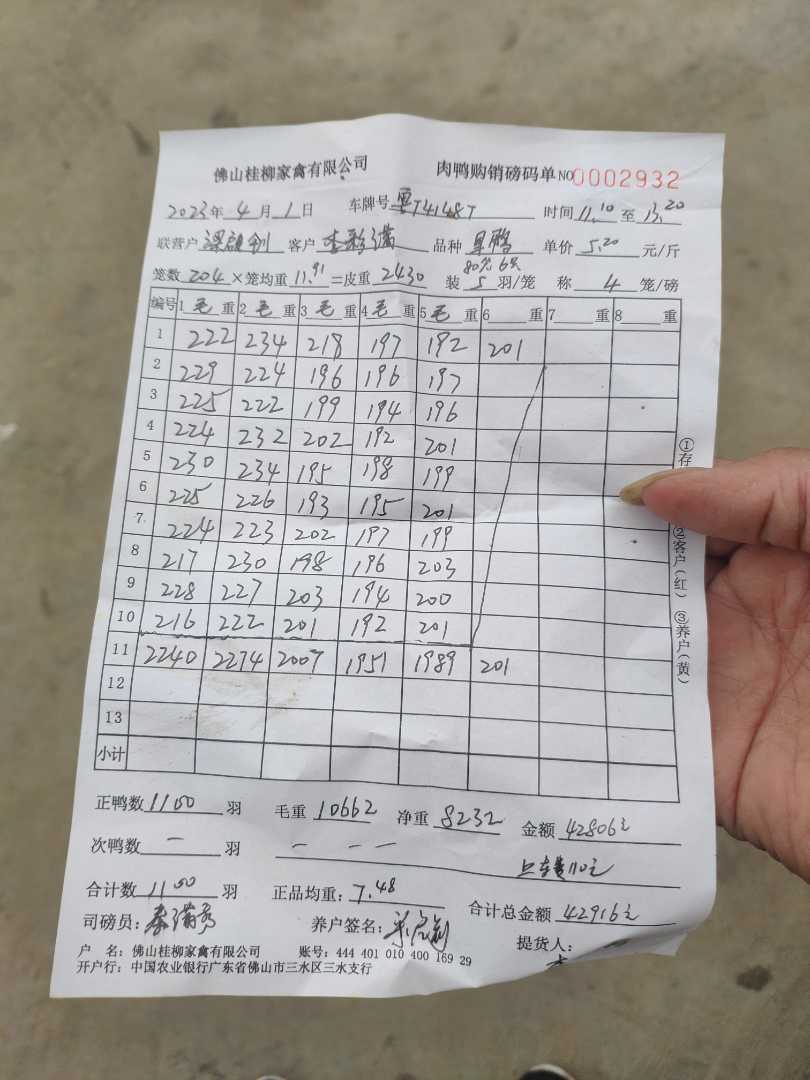 佛山桂柳家禽有限公司 肉鸭购销磅码单 NO 0002932
2023年 4月 1日 车牌号 粤T41487 时间 11.10 至 13.20
联营户 客户 李彩满 品种 单价 5.20 元/斤
笼数 204 ×笼均重 11.91 =皮重 2430 装 5 羽/笼 称 4 笼/磅
编号 1 毛 重 2 毛 重 3 毛 重 4 毛 重 5 毛 重 6 重 7 重 8 重
1 222 234 218 197 192 201
2 229 224 196 196 197
3 225 222 199 194 196
4 224 232 202 192 201
5 230 234 195 198 199
6 225 226 193 195 201
7 224 223 202 197 199
8 217 230 198 196 203
9 228 227 203 194 200
10 216 222 201 192 201
11 2240 2274 2007 1951 1989 201
12
13
小计
正鸭数 1100 羽 毛重 10662 净重 8232 金额 42806元
次鸭数 一 羽 一 一 一 110元
合计数 1100 羽 正品均重: 7.48 合计总金额 42916元
司磅员: 养户签名: 提货人:
户 名: 佛山桂柳家禽有限公司 账号: 444 401 010 400 169 29
开户行: 中国农业银行广东省佛山市三水区三水支行
①存
②客户(红)
③养户(黄)